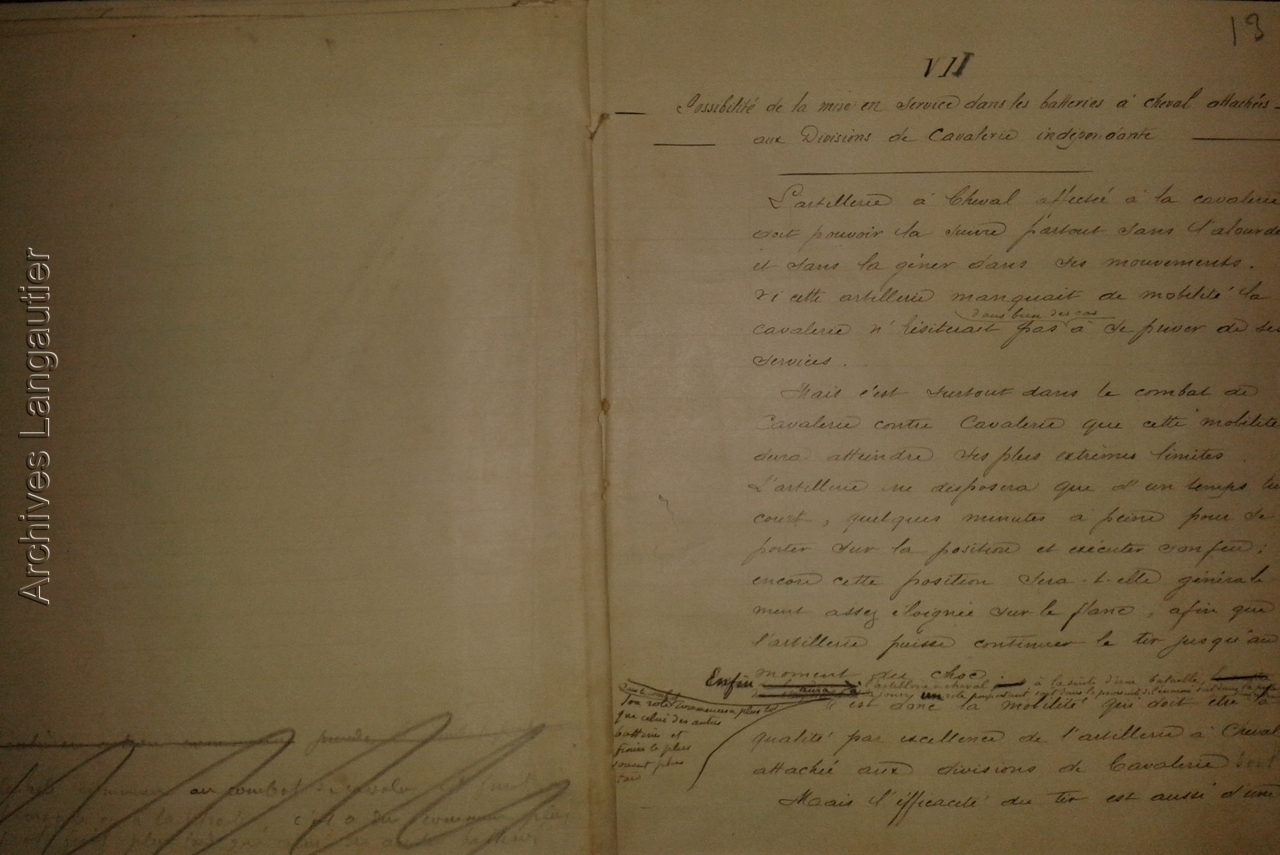 13
VII
Possibilité de la mise en service dans les batteries à cheval attachées
aux Divisions de Cavalerie indépendante
L'artillerie à Cheval affectée à la cavalerie
doit pouvoir la suivre partout sans l'alourdi
et sans la gêner dans ses mouvements.
Si cette artillerie manquait de mobilité la
dans bien des cas
cavalerie n'hésiterait pas à se priver de ses
services.
Mais c'est surtout dans le combat de
Cavalerie contre Cavalerie que cette mobilité
devra atteindre ses plus extrêmes limites.
L'artillerie ne disposera que d'un temps très
court, quelques minutes à peine pour se
porter sur la position et exécuter son feu;
encore cette position sera-t-elle générale
ment assez éloignée sur le flanc, afin que
l'artillerie puisse continuer le tir jusqu'au
moment du choc.
Enfin aura l'artillerie à cheval à la suite d'une bataille,
un rôle important soit dans la poursuite de l'ennemi soit dans la
C'est donc la mobilité qui doit être la
qualité par excellence de l'artillerie à Cheval
attachée aux divisions de Cavalerie
Mais l'efficacité du tir est aussi d'une
Son rôle commencera plus tôt
que celui des autres
batteries et
finira le plus
souvent plus
tard
au combat de cavalerie
Archives Langautier